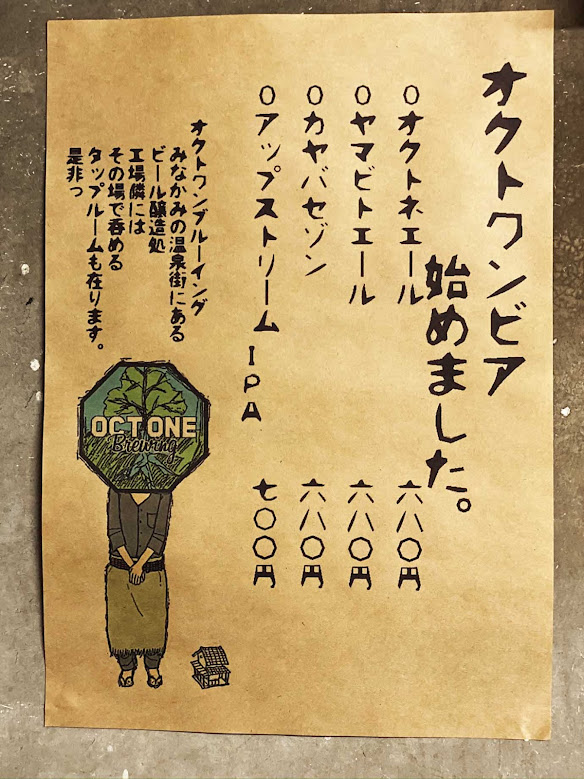 オクトワンビア
始めました。
○オクトネエール 六八〇円
○ヤマビトエール 六八〇円
○カヤバセゾン 六八〇円
○アップストリームIPA 七〇〇円
オクトワンブルーイング
みなかみの温泉街にある
ビール醸造処
工場隣には
その場で呑める
タップルームも在ります。
是非っ
OCTONE
Brewing